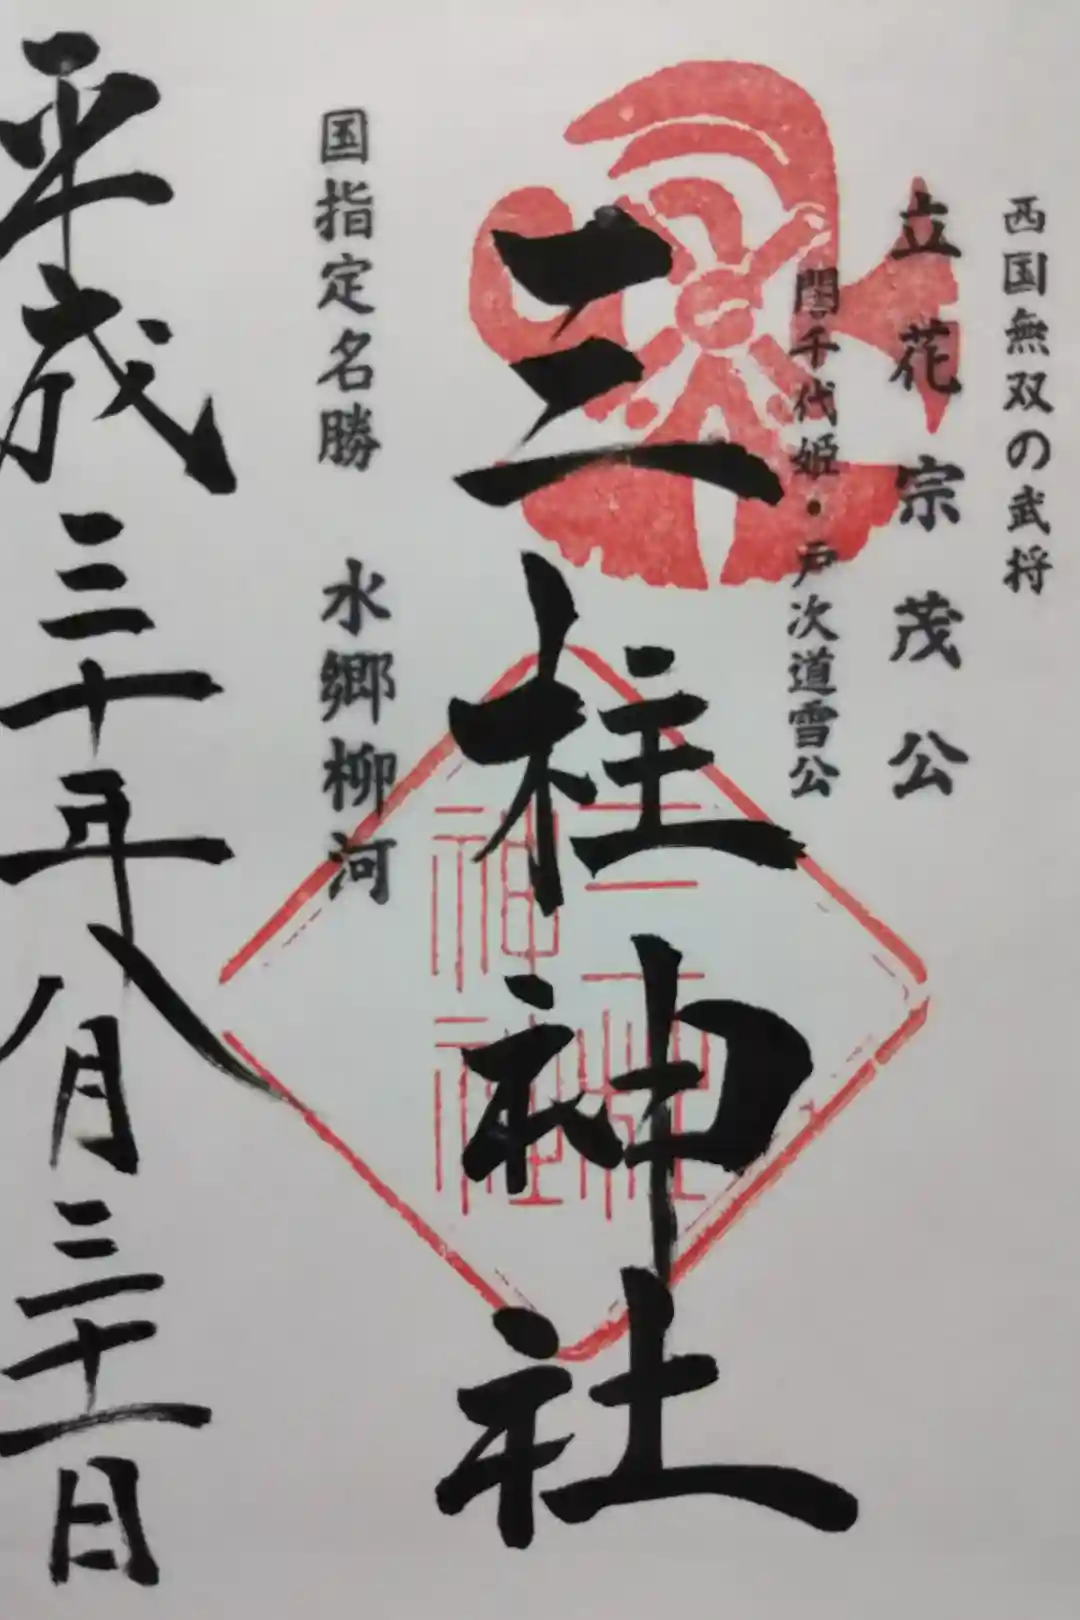 西国無双の武将
立花宗茂公
誾千代姫・戸次道雪公
三柱神社
三柱神社
国指定名勝 水郷柳河
平成三十年八月三十一日